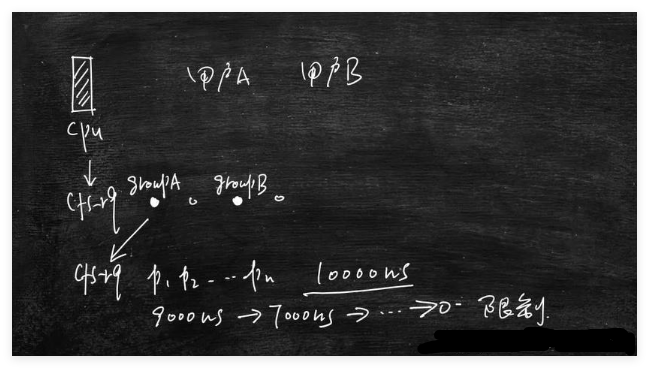 用户A 用户B
cpu
cfs-rq groupA groupB
cfs-rq p1 p2 ... pn 10000ns
9000ns → 7000ns → ... → 0 - 限制.